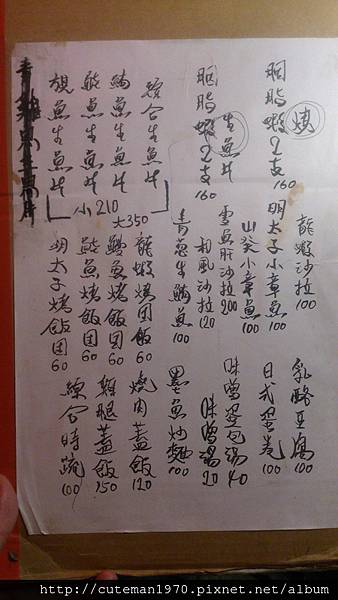 胭脂蝦2支 160 (燒)
龍蝦沙拉 100
明太子小章魚 100
山葵小章魚 100
胭脂蝦2支 160 (生魚片)
雪魚肝沙拉 200
和風沙拉 120
青蔥生鮪魚 100
綜合生魚片
鮪魚生魚片
鮭魚生魚片
旗魚生魚片
小210
大350
龍蝦烤飯团 60
鰻魚烤飯团 60
鮭魚烤飯团 60
明太子烤飯团 60
乳酪豆腐 100
日式蛋卷 100
味噌蛋包湯 40
味噌湯 20
墨魚炒麵 100
燒肉蓋飯 120
雞腿蓋飯 150
綜合時蔬 100
http://cuteman1970.pixnet.net/album